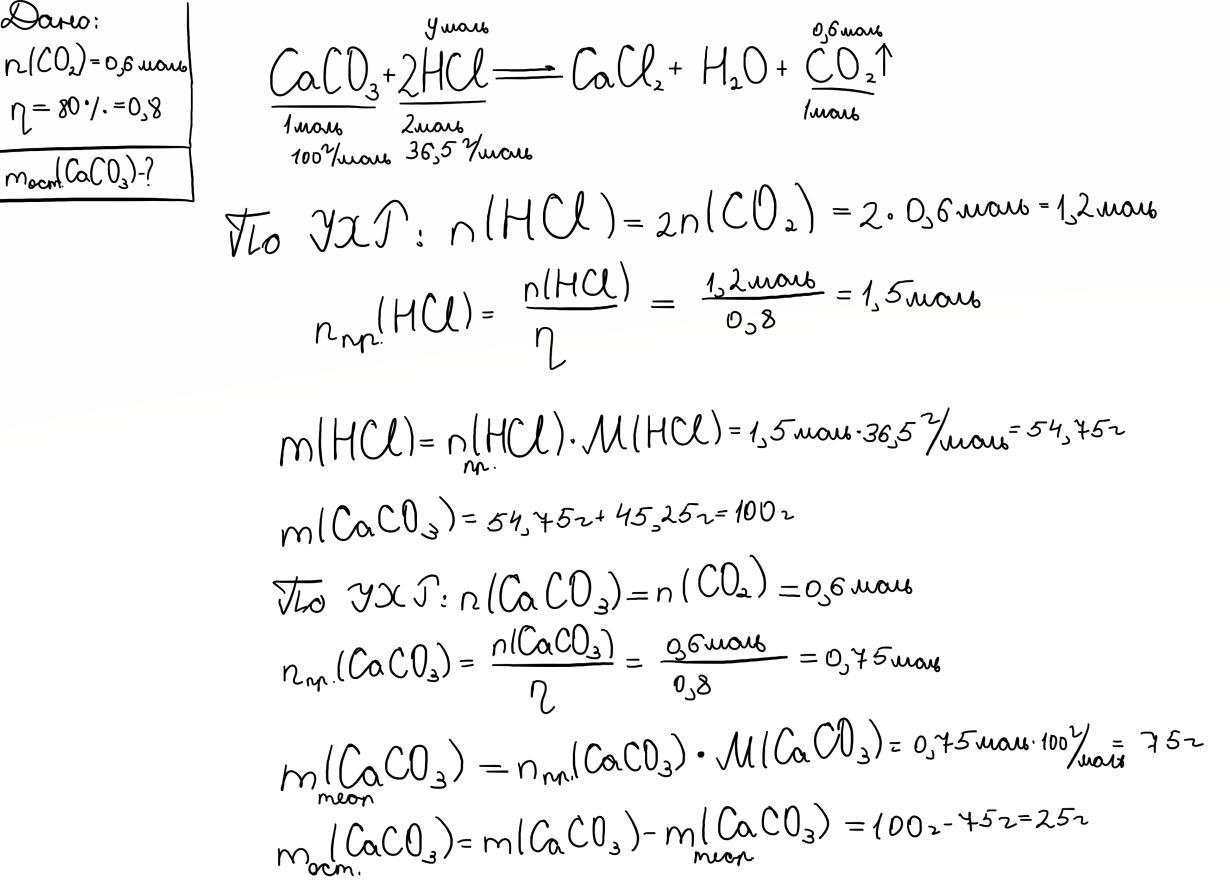 Дано:
n(CO₂)=0,6 моль
η = 80% = 0,8
mост.(CaCO₃)-?
y моль
0,6 моль
CaCO₃ + 2HCl = CaCl₂ + H₂O + CO₂↑
1 моль 2 моль 1 моль
100 г/моль 36,5 г/моль
По УХР: n(HCl) = 2n(CO₂) = 2 · 0,6 моль = 1,2 моль
nпр.(HCl) = n(HCl)/η = 1,2 моль/0,8 = 1,5 моль
m(HCl) = nпр.(HCl) · M(HCl) = 1,5 моль · 36,5 г/моль = 54,75 г
m(CaCO₃) = 54,75 г + 45,25 г = 100 г
По УХР: n(CaCO₃) = n(CO₂) = 0,6 моль
nпр.(CaCO₃) = n(CaCO₃)/η = 0,6 моль/0,8 = 0,75 моль
mтеор(CaCO₃) = nпр.(CaCO₃) · M(CaCO₃) = 0,75 моль · 100 г/моль = 75 г
mост.(CaCO₃) = m(CaCO₃) - mтеор(CaCO₃) = 100 г - 75 г = 25 г